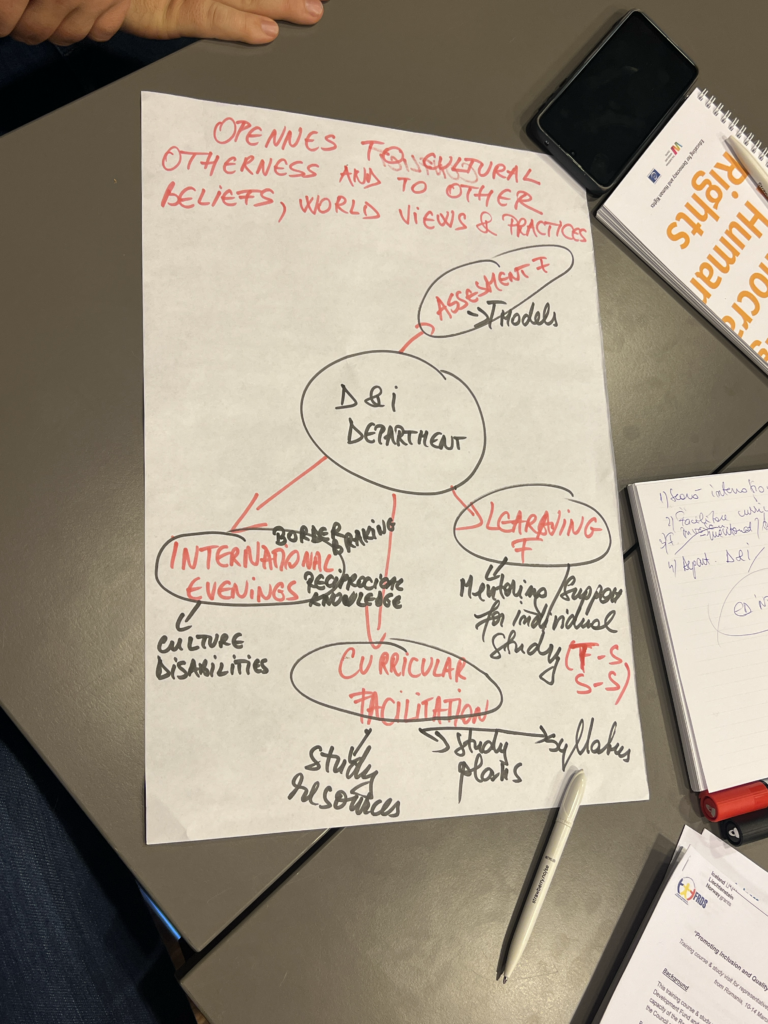 OPENNES TO CULTURAL
OTHERNESS AND TO OTHER
BELIEFS, WORLD VIEWS & PRACTICES
ASSESMENT F
Models
D&i
DEPARTMENT
INTERNATIONAL
EVENINGS
BORDER
BRAKING
RECIPROCICAL
KNOWLEDGE
CULTURE
DISABILITIES
LEARNING
F
Mentoring
Support
for individual
study
(T-S
S-S)
CURRICULAR
FACILITATION
Study
resources
Study
plans
syllabus
Rights
Human
1) Search internation
2) Facilitate curric
4) Depart. D&i
Iceland
Liechtenstein
Norway grants
FRDS
"Promoting Inclusion and Quality
Training course & study visit for representativ
from Romania, 10-14 Ma
Background
The training course & stud
Development Fund and
capacity of the R
the Council